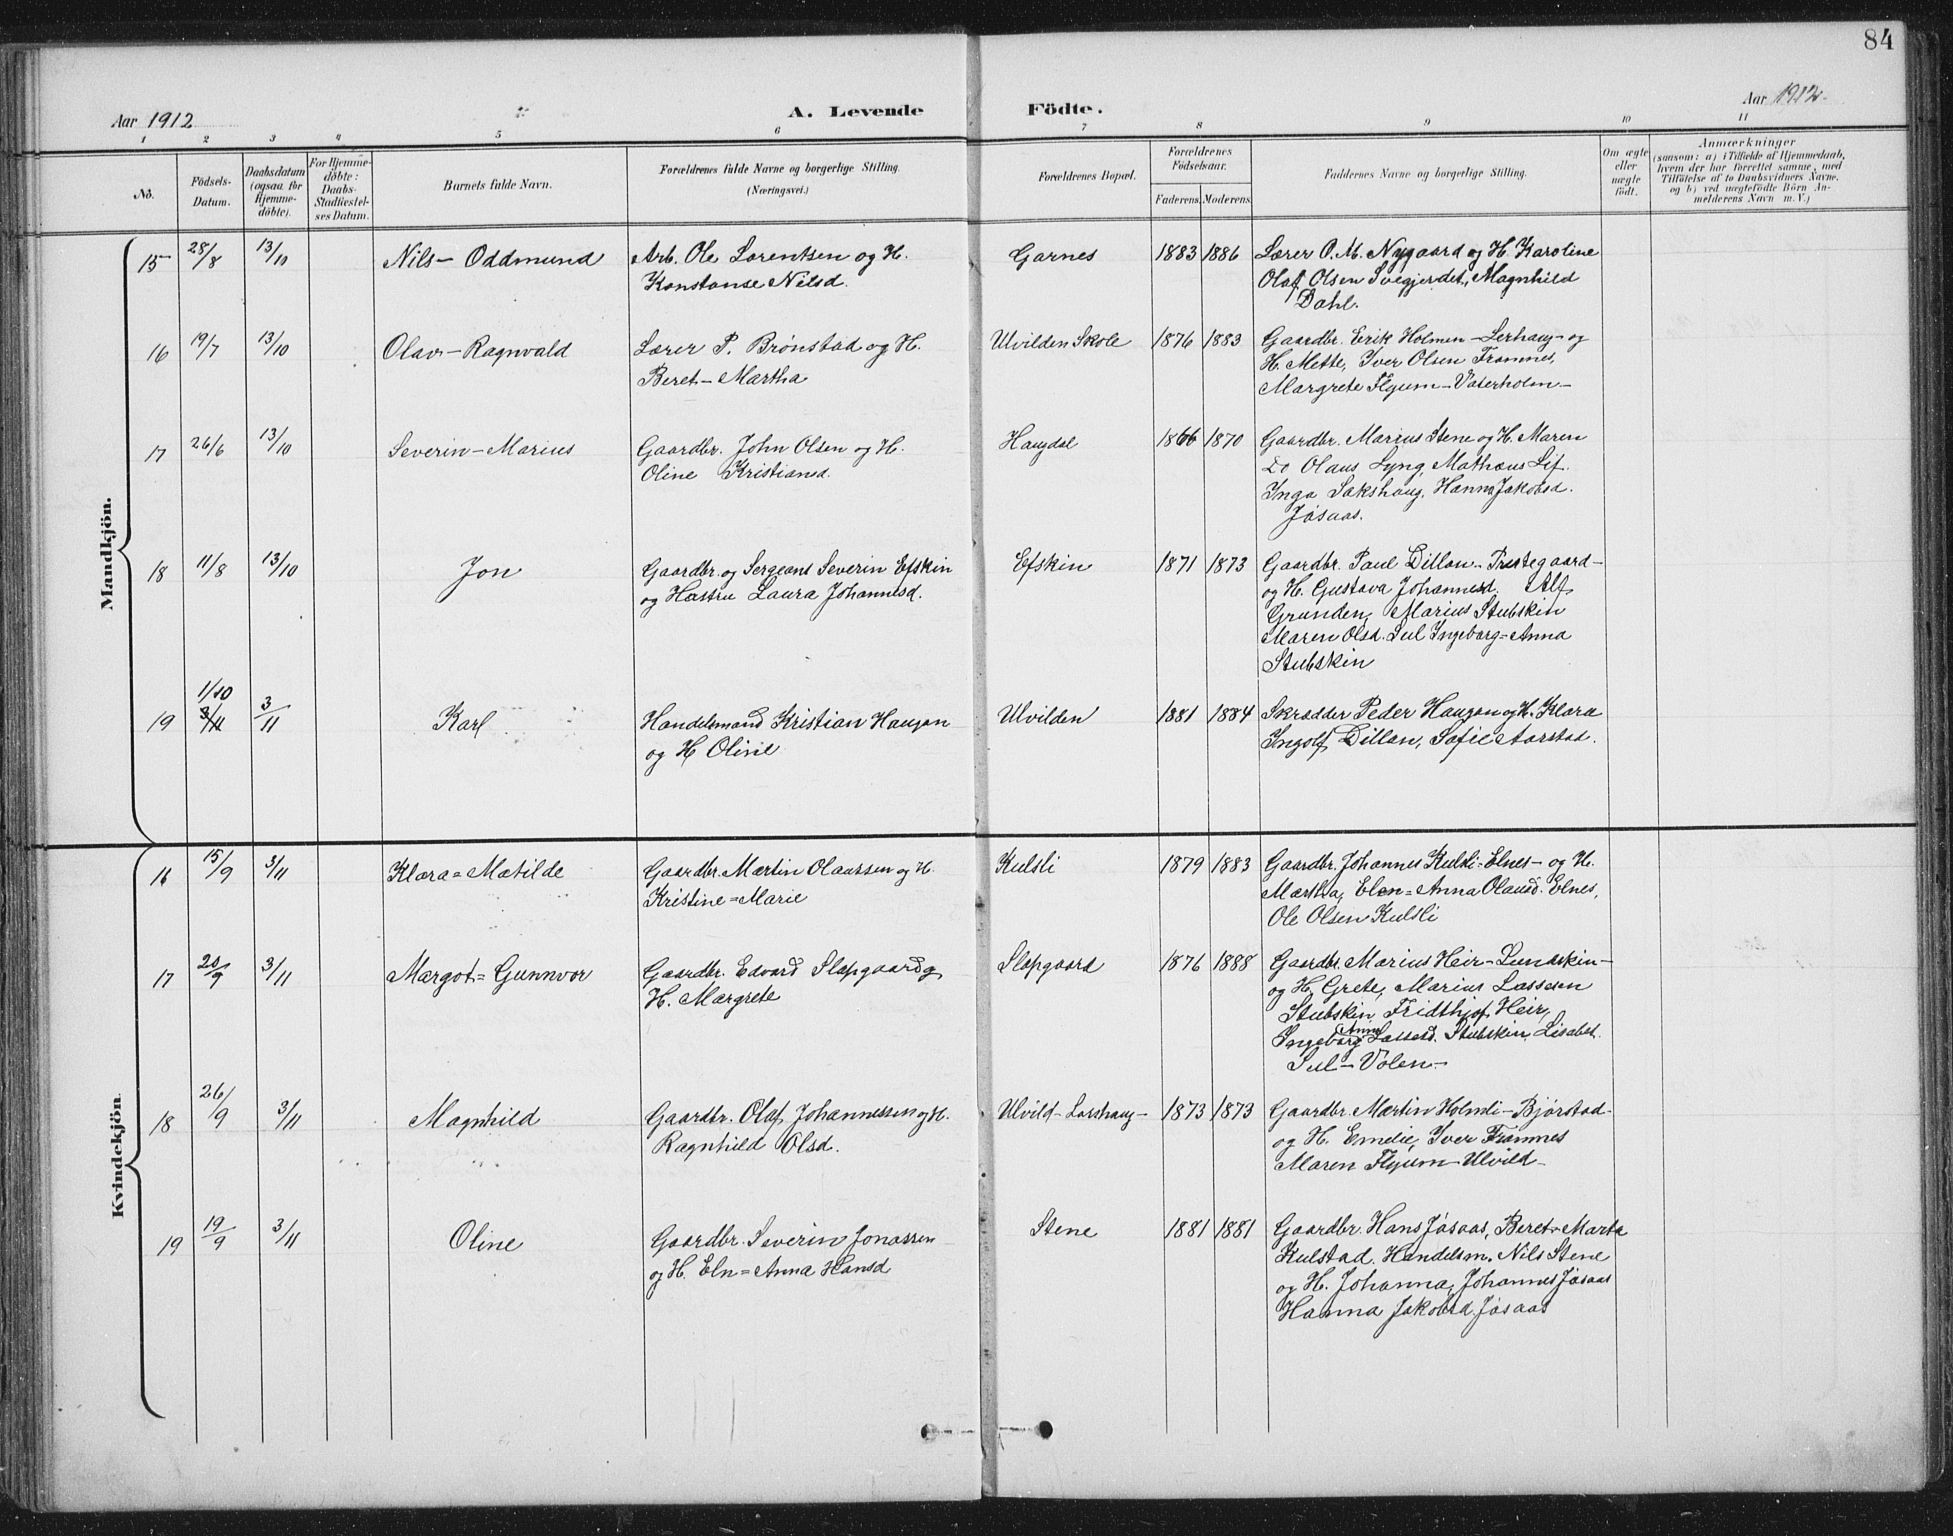 84
Aar 1912
A. Levende Födte.
Aar 1912
1 2 3 4 5 6 7 8 9 10 11
No.
Födsels-Datum.
Daabsdatum (ogsaa for Hjemme-döbte).
For Hjemme-döbte: Daabs-Stadfæstelses Datum.
Barnets fulde Navn.
Forældrenes fulde Navne og borgerlige Stilling.
(Næringsvei.)
Forældrenes Bopæl.
Forældrenes Födselsaar.
Faderens. Moderens.
Faddernes Navne og borgerlige Stilling.
Om ægte eller uægte födt.
Anmærkninger
(saasom: a) i Tilfælde af Hjemmedaab,
hvem der har forrettet samme, med
Tilföielse af to Daabsvidners Navne,
og b) ved uægtefödte Börn An-
melderens Navn m. V.)
Mandkjön.
15 28/8 13/10 Nils-Oddmund Arb. Ole Lorentsen og H. Garnes 1883 1886 Lærer O. M. Nygaard og H. Karoline
Konstanse Nilsd. Olaf Olsen Svegjerdet, Magnhild
Dahl.
16 19/7 13/10 Olav-Ragnvald Lærer P. Brønstad og H. Ulvilden Skole 1876 1883 Gaardbr. Erik Holmen-Lerhaug- og
Beret-Martha H. Mette, Iver Olsen Framnes,
Margrete Flyum-Vaterholm-
17 26/6 13/10 Severin-Marius Gaardbr. John Olsen og H. Haugdal 1866 1870 Gaardbr. Marius Stene og H. Maren
Oline Kristiansd. Do Olaus Lyng, Mathæus Lif.
Inga Sakshaug, Hanna Jakobsd.
Jøsaas.
18 11/8 13/10 Jon Gaardbr. og Sergeant Severin Efskin Efskin 1871 1873 Gaardbr. Paul Dillan-Prestegaard-
og Hustru Laura Johannesd. og H. Gustava Johannesd. Alf
Grunden, Marius Stubskin
Maren Olsd. Sul Ingeborg-Anna
Stubskin
19 1/10 3/11 3/11 Karl Handelsmand Kristian Haugan Ulvilden 1881 1884 Skrædder Peder Haugan og H. Klara
og H Oline Ingolf Dillan, Sofie Aarstad.
Kvindekjön.
16 15/9 3/11 Klara=Matilde Gaardbr. Martin Olaussen og H. Kulsli 1879 1883 Gaardbr. Johannes Kulsli-Elnes- og H.
Kristine=Marie Martha, Elen=Anna Olausd. Elnes,
Ole Olsen Kulsli
17 20/9 3/11 Margot=Gunnvor Gaardbr. Edvard Slapgaard og Slapgaard 1876 1888 Gaardbr. Marius Heir-Lundskin-
H. Margrete og H. Grete, Marius Lassesen
Stubskin, Fridthjof Heir,
Ingeborg Anna Lassesd. Stubskin, Lisabet
Sul-Volen-
18 26/9 3/11 Magnhild Gaardbr. Olaf Johannessen og H. Ulvild-Larshaug- 1873 1873 Gaardbr. Martin Holmli-Bjørstad-
Ragnhild Olsd. og H. Emelie, Iver Framnes
Maren Flyum-Ulvild-
19 19/9 3/11 Oline Gaardbr. Severin Jonassen Stene 1881 1881 Gaardbr. Hans Jøsaas, Beret-Marta
og H. Eln=Anna Hansd Kulstad, Handelsm. Nils Stene
og H. Johanna, Johannes Jøsaas
Hanna Jakobsd. Jøsaas